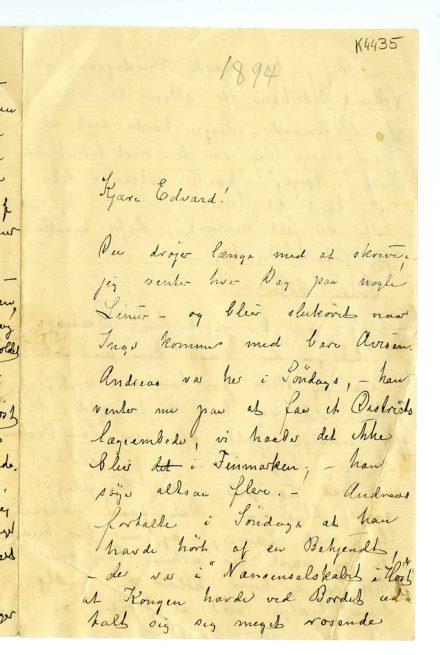 K4435
1894
Kjære Edvard!
Du drøjer længe med at skrive,
jeg venter hver Dag paa nogle
Linier – og bliver slukøret naar
Inger kommer med bare Avisen.
Andreas var her i Søndags, – han
venter nu paa at faa et Distrikts
lægeembede, vi haaber det ikke
blir det i Finmarken, – han
søger altsaa flere. – Andreas
fortalte i Søndags at han
havde hørt af en Bekjendt,
– der var i "Nansenselskabet i Høst"
at Kongen havde ved Bordet ud
talt sig sig meget rosende